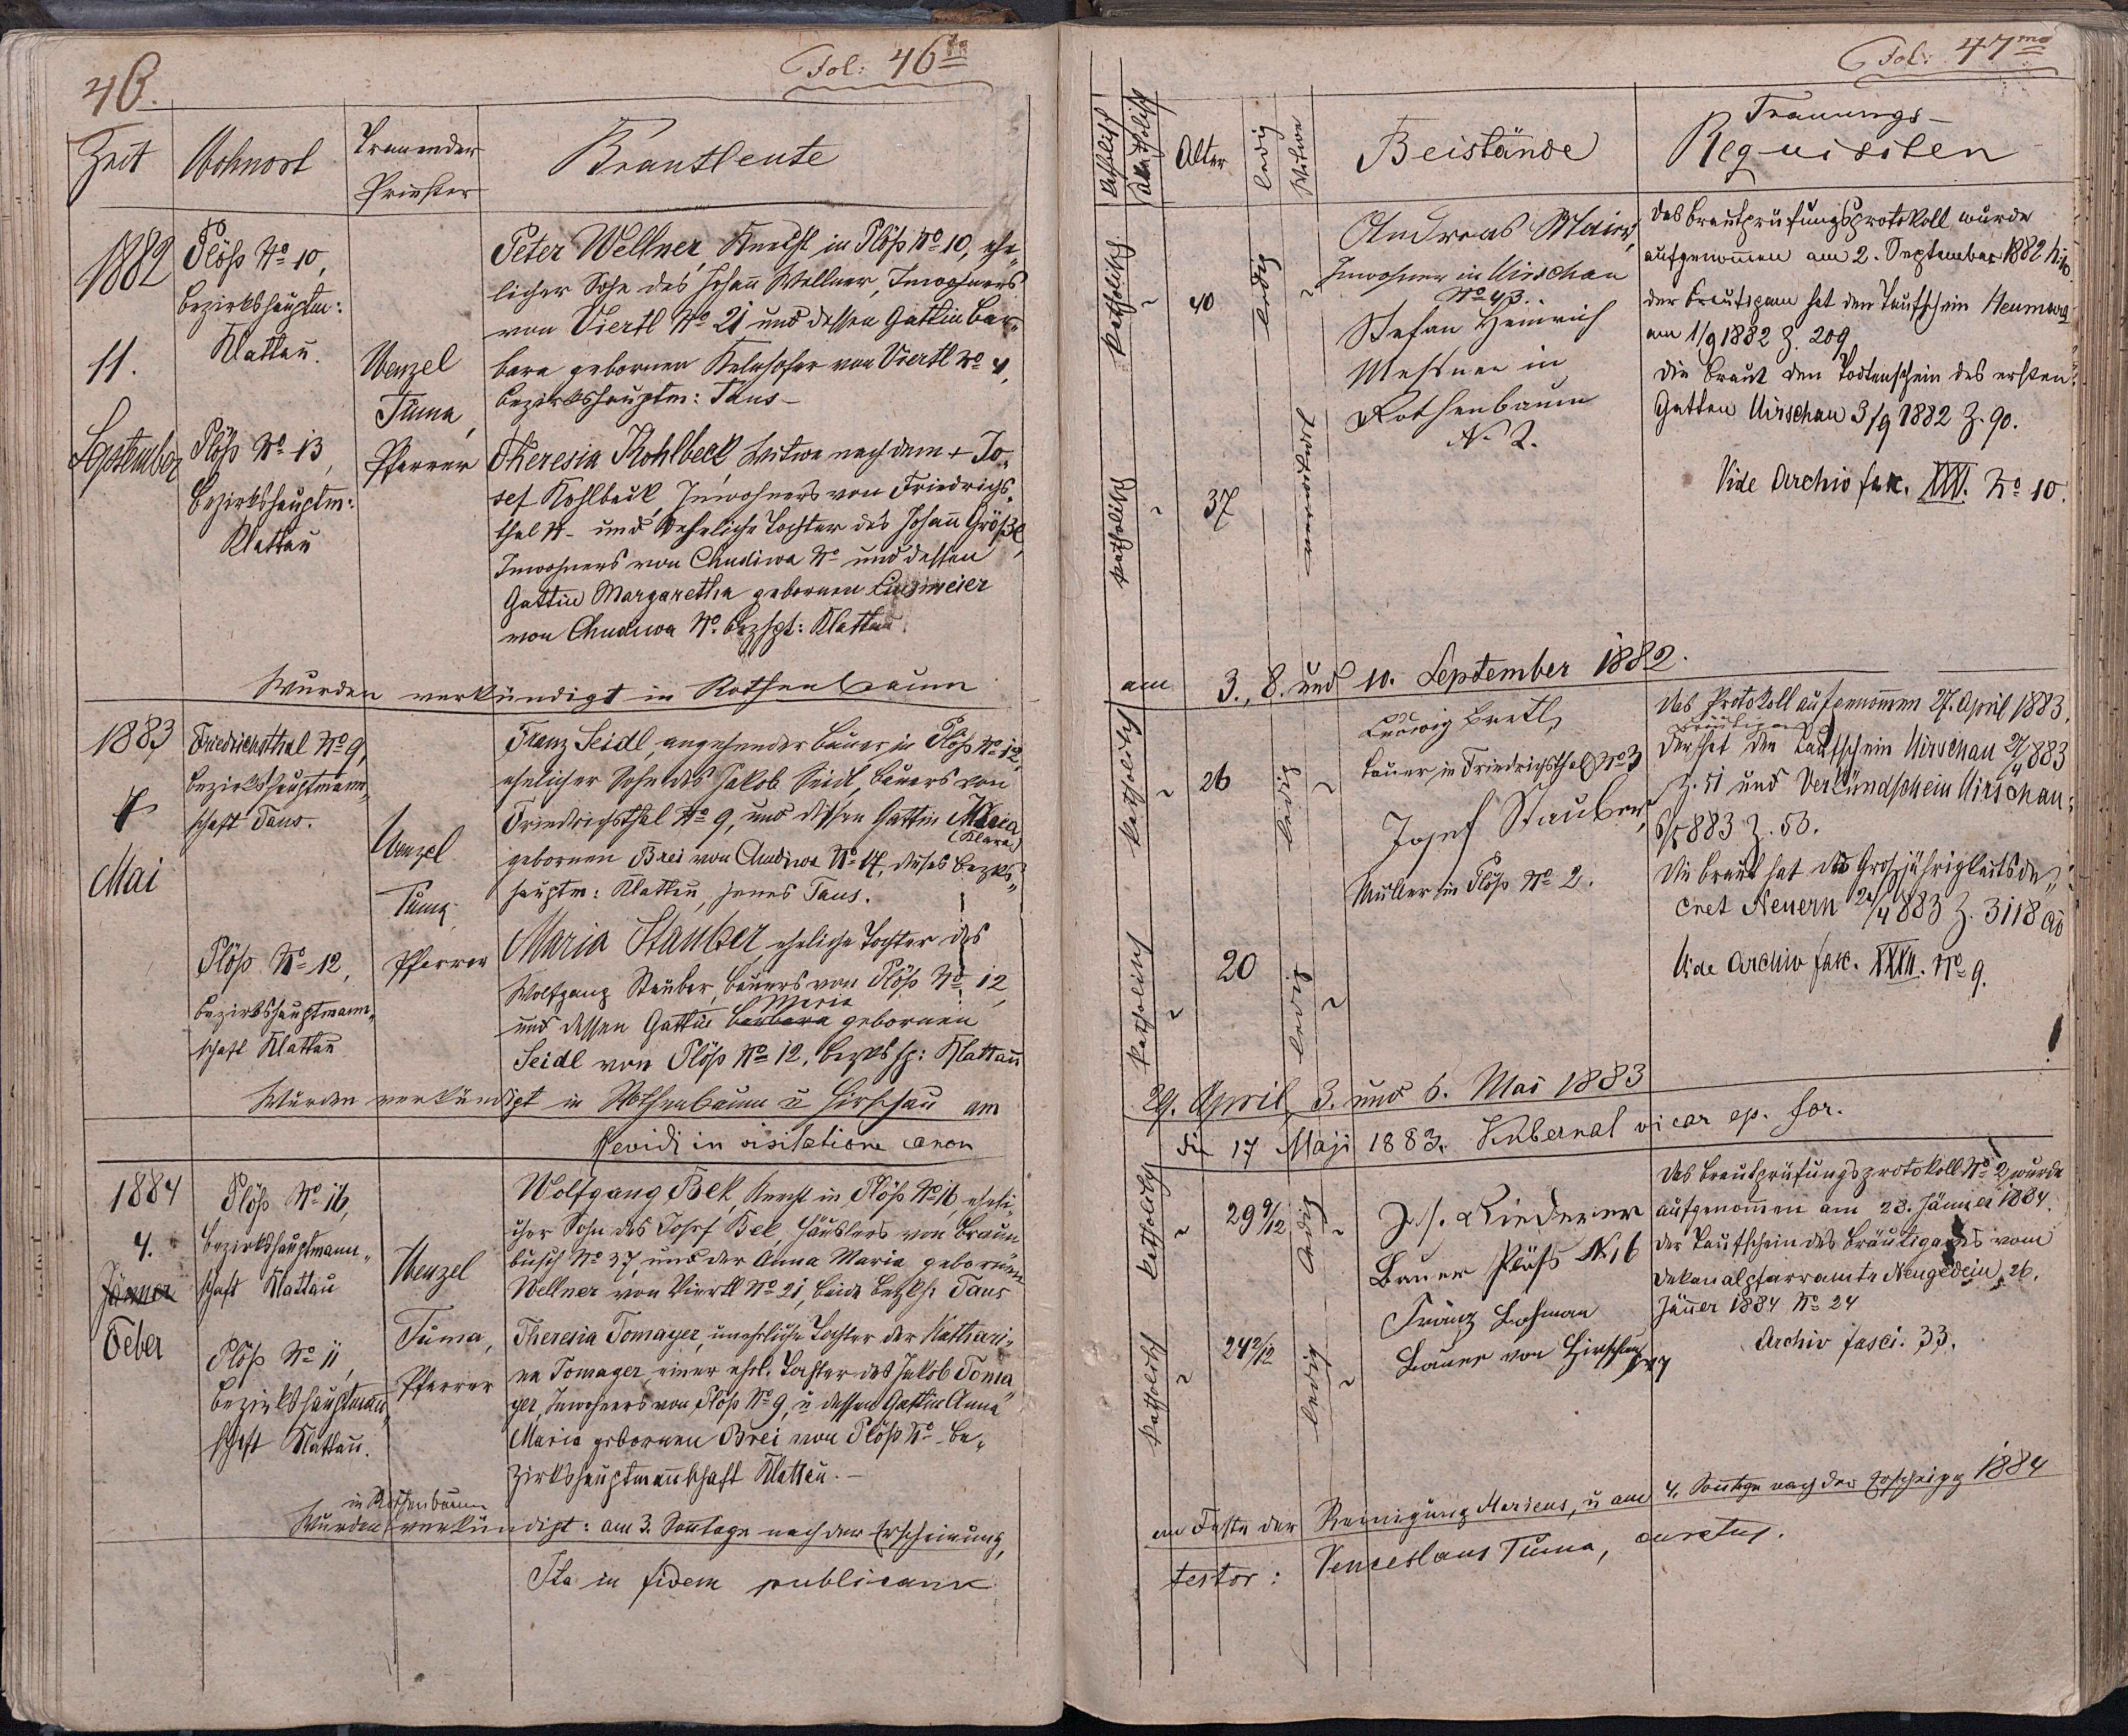 46.
Fol: 46ta
Zeit
Wohnort
Trauender
Priester
Brautleute
1882
11.
September
Plöß No 10,
Bezirkshauptm:
Klattau.
Plöß No 13,
Bezirkshauptm:
Klattau
Wenzel
Tuma,
Pfarrer
Peter Wellner, Knecht in Plöß No 10, ehe„
licher Sohn des Johann Wellner, Inwohners
von Viertl No 21 und dessen Gattin Bar„
bara gebornen Kelnhofer von Viertl No 4,
Bezirkshauptm: Taus –
Theresia Kohlbeck, Witwe nach dem + Jo„
sef Kohlbeck, Inwohners von Friedrichs„
thal N– und eheliche Tochter des Johann Größl,
Inwohners von Chudiwa No und dessen
Gattin Margaretha gebornen
von Chudiwa No. Bezhpt: Klattau.
Wurden verkündigt in Rothenbaum
1883
7
Mai
Friedrichsthal No 9,
Bezirkshauptmann„
schaft Taus.
Plöß No 12,
Bezirkshauptmann„
schaft Klattau
Wenzel
Tuma,
Pfarrer
Franz Seidl, angehender Bauer in Plöß No 12,
ehelicher Sohn des Jakob Seidl, Bauers von
Friedrichsthal No 9, und dessen Gattin Maria
(Klara)
gebornen Brei von Chudiwa No 17, dieses Bezks„
hauptm: Klattau, jenes Taus.
Maria Stauber, eheliche Tochter des
Wolfgang Stauber, Bauers von Plöß No 12,
Maria
und dessen Gattin Barbara gebornen
Seidl von Plöß No 12, Bezkshp: Klattau
Wurden verkündigt in Rothenbaum u Hirschau am
Revidi in visitatione canon
1884
4.
Jänner
Feber
Plöß No 16,
Bezirkshauptmann„
schaft Klattau
Plöß No 11,
Bezirkshauptmann„
schaft Klattau.
Wenzel
Tuma,
Pfarrer
Wolfgang Bek, Knecht in Plöß No 16, eheli„
cher Sohn des Josef Bek, Häuslers von Braun„
busch No 37, und der Anna Maria, gebornen
Wellner von Viertl No 21, beide Bezksh: Taus
Theresia Tomayer, uneheliche Tochter der Kathari„
na Tomayer, einer ehel. Tochter des Jakob Toma„
yer, Inwohners von Plöß No 9, u dessen Gattin Anna
Maria gebornen Brei von Plöß No – Be„
zirkshauptmannschaft Klattau. –
in Rothenbaum
Wurden verkündigt: am 3. Sonntage nach der Erscheinung,
Ita in fidem publicam
Fol: 47ma
katholisch
akatholisch
Alter
ledig
Witwe
Beistände
Trauungs–
Requisiten
katholisch
40
ledig
katholisch
37
verwitwet
Andreas Maier,
Inwohner in Hirschau
No 43.
Stefan Heinrich
Messner in
Rothenbaum
N. 2.
Das Brautprüfungsprotokoll wurde
aufgenommen am 2. September 1882
der Bräutigam hat den Taufschein Neumark
am 1/9 1882 Z. 209
Die Braut den Todtenschein des ersten
Gatten Hirschau 3/9 1882 Z. 90.
Vide Archiv fask. XXXI. No 10.
am 3., 8. und 10. September 1882.
katholisch
26
ledig
katholisch
20
ledig
Ludwig Bretl,
Bauer in Friedrichsthal No 3
Josef Stauber,
Müller in Plöß No 2.
Das Protokoll aufgenommen 27. April 1883.
Bräutigam
Der hat den Taufschein Hirschau 27/4 883
Z. 51 und Verkündschein Hirschau
6/5 883 Z. 53.
Die Braut hat das Großjährigkeitsde„
cret Neuern 24/4 883 Z. 3118
Vide Archiv fask. XXXII. No 9.
29. April, 3. und 6. Mai 1883
die 17 Maji 1883. Kubernat vicar ep. for.
katholisch
29 9/12
ledig
katholisch
24 2/12
ledig
Jos. Riederer
Bauer Plöß N. 16
Franz Lohman
Bauer von Hirschau
Das Brautprüfungsprotokoll No 2, wurde
aufgenommen am 23. Jänner 1884.
Der Taufschein des Bräutigams vom
Dekanalpfarramte Neugedein, 26.
Jänner 1884 No 24
Archiv fasci. 33.
am Feste der Reinigung Mariens, u am 4. Sonntage nach der Erscheing 1884
testor: Venceslaus Tuma, curatus.